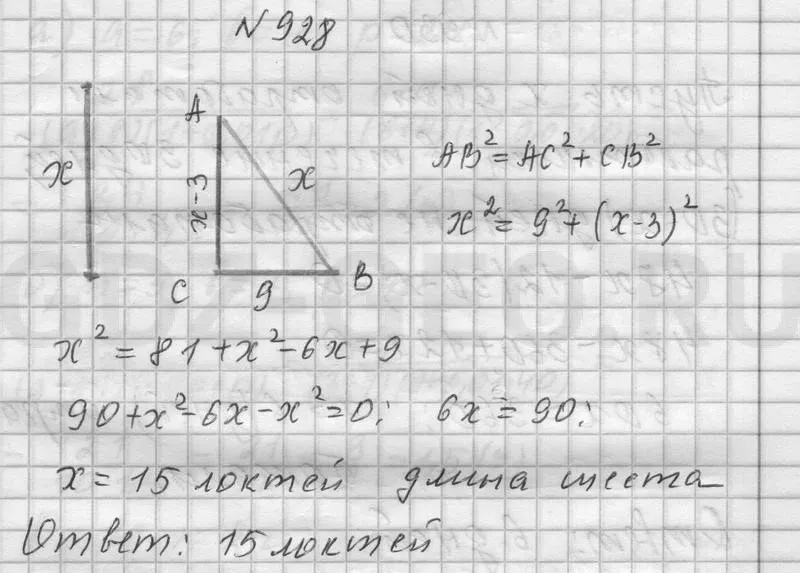 N 928
A
x
x-3
x
C
9
B
AB² = AC² + CB²
x² = 9² + (x-3)²
x² = 81 + x² - 6x + 9
90 + x² - 6x - x² = 0; 6x = 90;
x = 15 локтей длина шеста
Ответ: 15 локтей